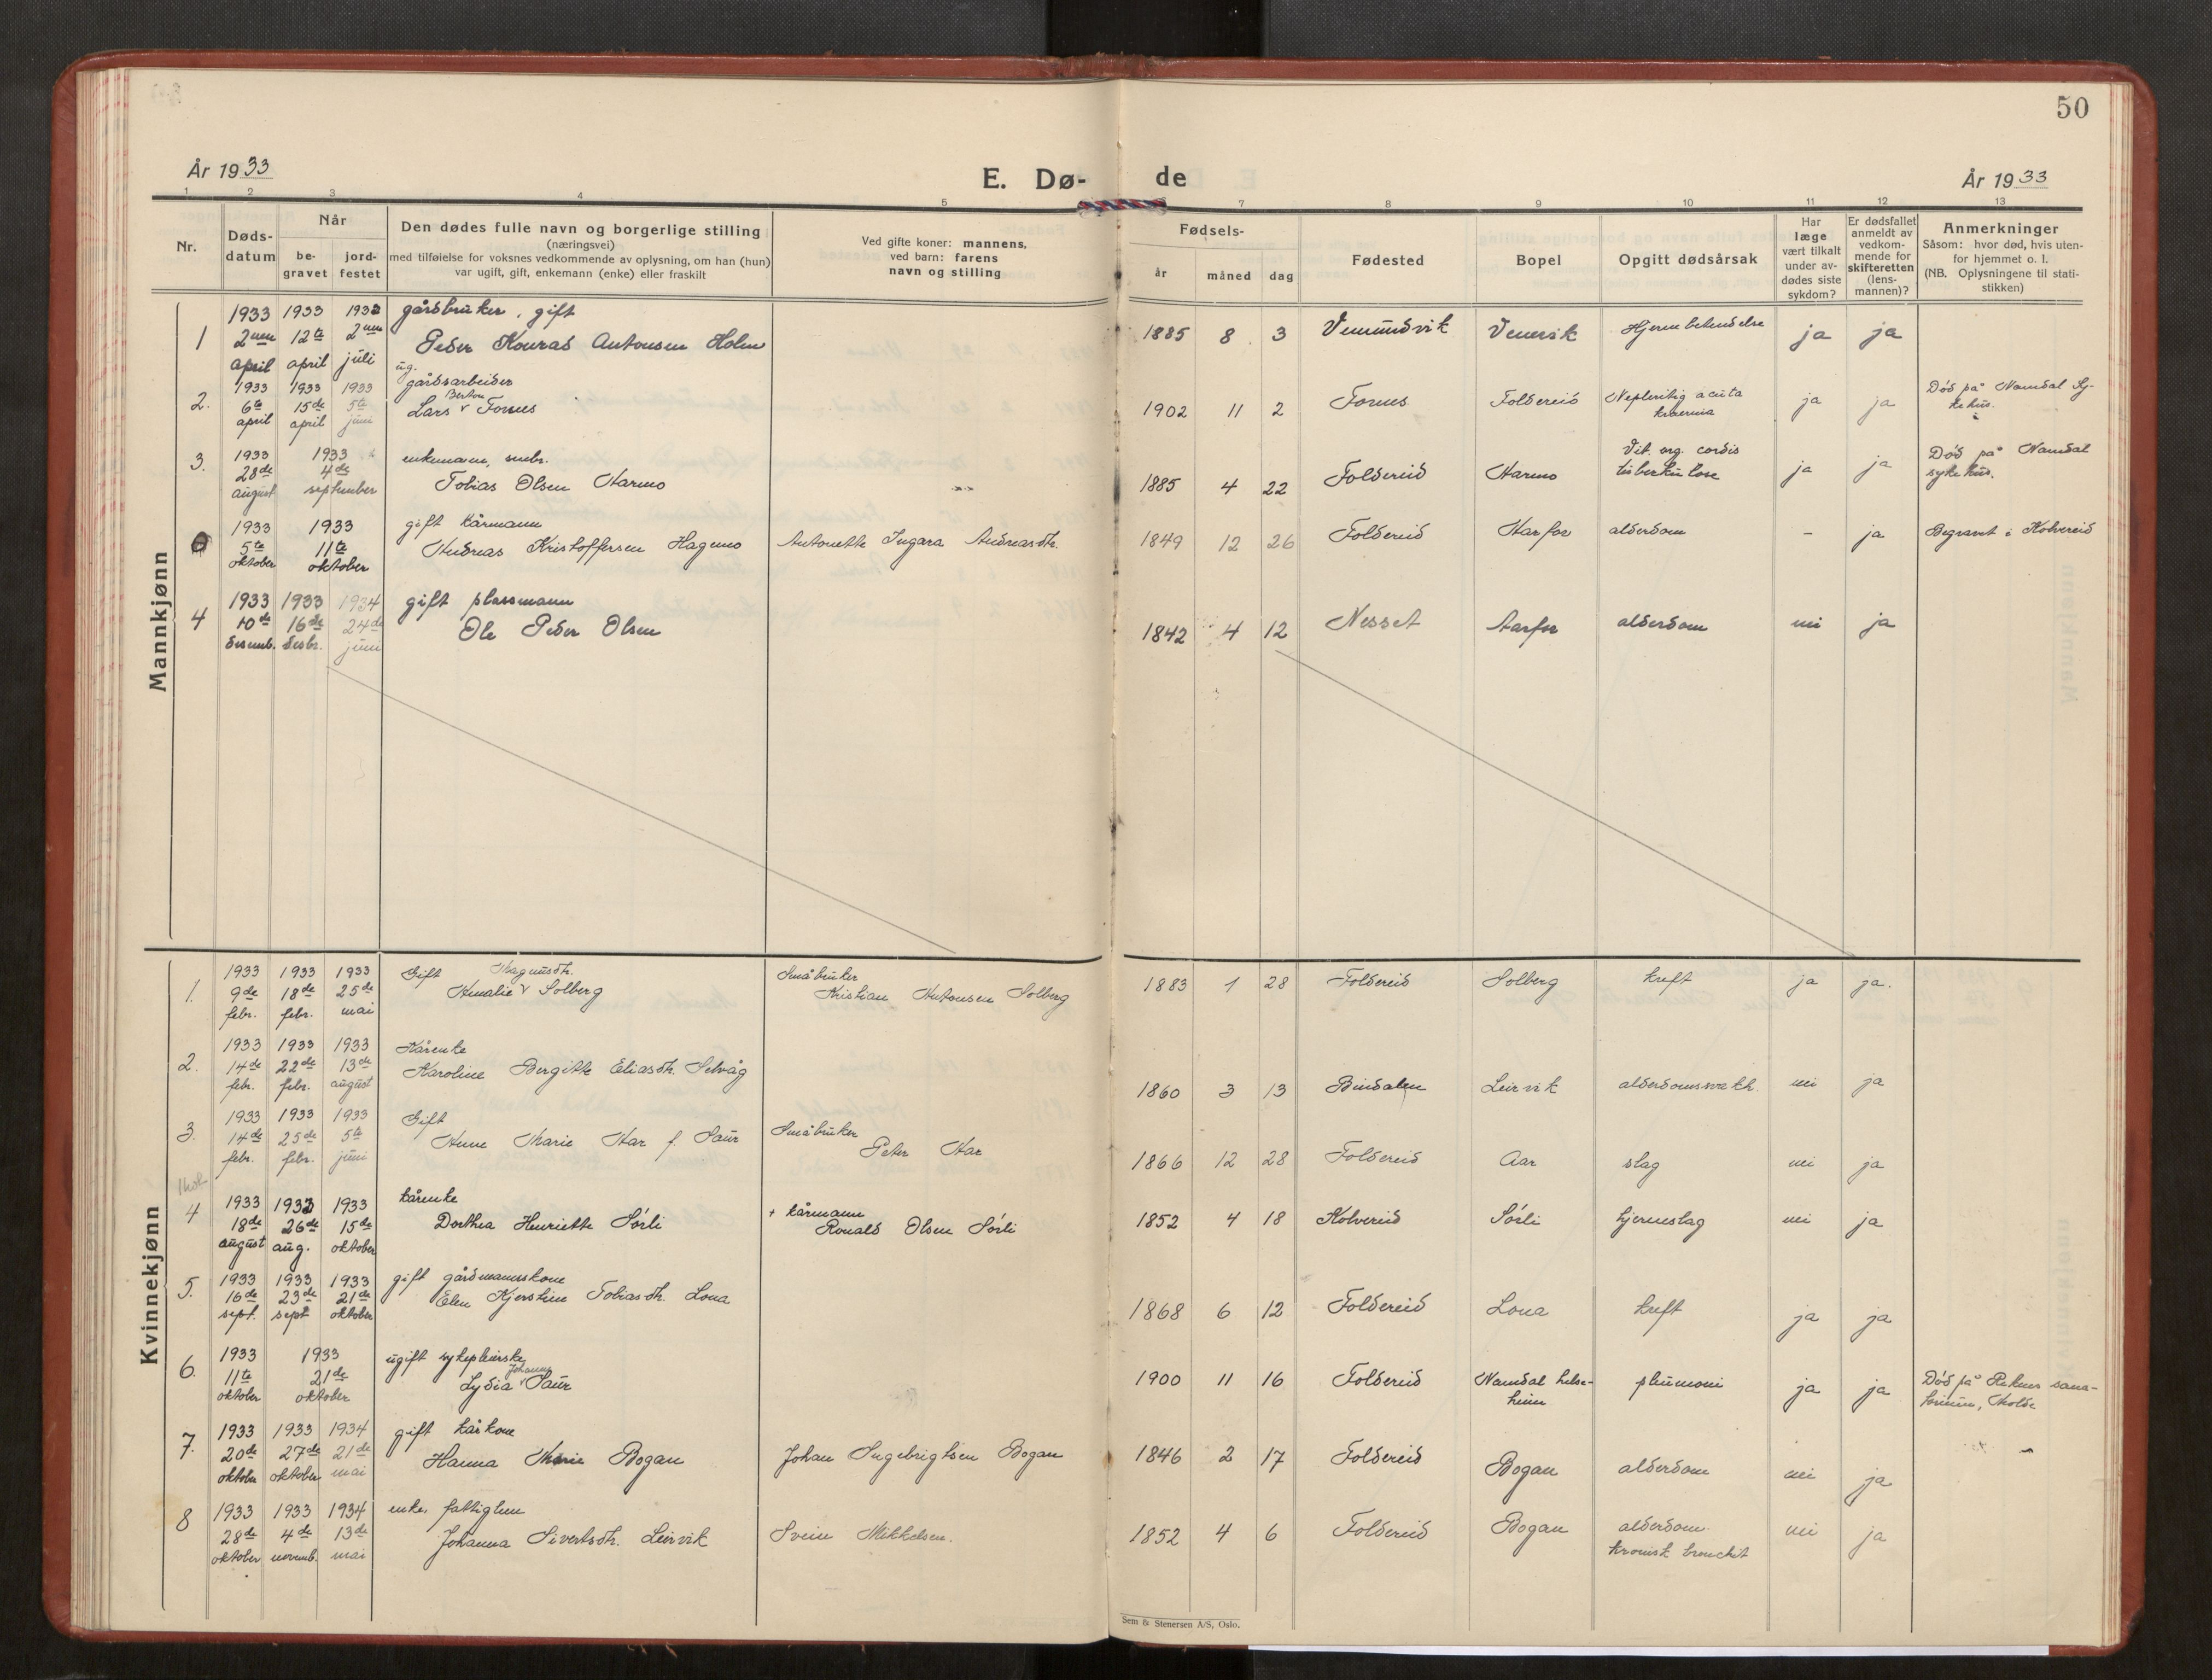 50
År 1933
E. Dø-
de
År 1933
1 2 3 4 5 6 7 8 9 10 11 12 13
Nr.
Døds-
datum
Når
be-
gravet
jord-
festet
Den dødes fulle navn og borgerlige stilling
(næringsvei)
med tilføielse for voksnes vedkommende av oplysning, om han (hun)
var ugift, gift, enkemann (enke) eller fraskilt
Ved gifte koner: mannens,
ved barn: farens
navn og stilling
Fødsels-
år måned dag
Fødested
Bopel
Opgitt dødsårsak
Har
læge
vært tilkalt
under av-
dødes siste
sykdom?
Er dødsfallet
anmeldt av
vedkom-
mende for
skifteretten
(lens-
mannen)?
Anmerkninger
Såsom: hvor død, hvis uten-
for hjemmet o. l.
(NB. Oplysningene til stati-
stikken)
Mannkjønn
1933 1933 1933 gårdbruker, gift
1 2nen 12te 2nen Peder Konrad Antonsen Holm 1885 8 3 Vemundsvik Hjernebetendelse ja ja
april april juli
ug.
1933 1933 1933 gårdsarbeider
Berton
2. 6te 15de 5te Lars v Fornes 1902 11 2 Fornes Foldereid acuta ja ja Død på Namdal Sy-
april april juni kehus.
1933 1933 enkemann, smbr.
3. 28de 4de Tobias Olsen Harmo 1885 4 22 Foldereid Harmo Vit. org. cordis ja ja Død på Namdal
august september tuberkulose sykehus.
1933 1933 gift kårmann
5te 11te Andreas Kristoffersen Hagmo Antonette Ingara Andreasdtr. 1849 12 26 Foldereid Aarfor alderdom - ja Begravet i Kolvereid
oktober oktober
1933 1933 1934 gift plassmann
4 10de 16de 24de Ole Peder Olsen 1842 4 12 Nesset Aarfor alderdom nei ja
desemb. desbr. juni
Kvinnekjønn
1933 1933 1933 Gift Magnusdtr. Småbruker
1. 9de 18de 25de Amalie v Solberg Kristian Antonsen Solberg 1883 1 28 Foldereid Solberg kreft ja ja.
febr. febr. mai
1933 1933 1933 Kårenke
2. 14de 22de 13de Karoline Bergitte Eliasdtr. Selvåg 1860 3 13 Bindalen Leirvik alderdomssvakh. nei ja
febr. febr. august
1933 1933 1933 Gift Småbruker
3. 14de 25de 5te Anne Marie Aar f. Saur Peter Aar 1866 12 28 Foldereid Aar slag nei ja
febr. febr. juni
1933 1933 1933 kårenke + kårmann
4 18de 26de 15de Dorthea Henriette Sörli Ronald Olsen Sörli 1852 4 18 Kolvereid Sörli hjerneslag nei ja
august aug. oktober
1933 1933 1933 gift gårdmannskone
5. 16de 23de 21de Elen Kjerstine Tobiasdtr. Lona 1868 6 12 Foldereid Lona kreft ja ja
sept. sept oktober
1933 1933 ugift sykepleierske
Johanne
6. 11te 21de Lydia v Saur 1900 11 16 Foldereid Namdal helse- ja ja Død på Reknes sana-
oktober oktober heim torium, Molde
1933 1933 1934 gift kårkone
7. 20de 27de 21de Hanna Marie Bogan Johan Ingebrigtsen Bogan 1846 2 17 Foldereid Bogan alderdom nei ja
oktober oktober mai
1933 1933 1934 enke, fattiglem
8 28de 4de 13de Johanna Sivertsdtr. Leirvik Svein Mikkelsen. 1852 4 6 Foldereid Bogan alderdom. nei ja
oktober novemb. mai kronisk bronchit
Sem & Stenersen A/S, Oslo.